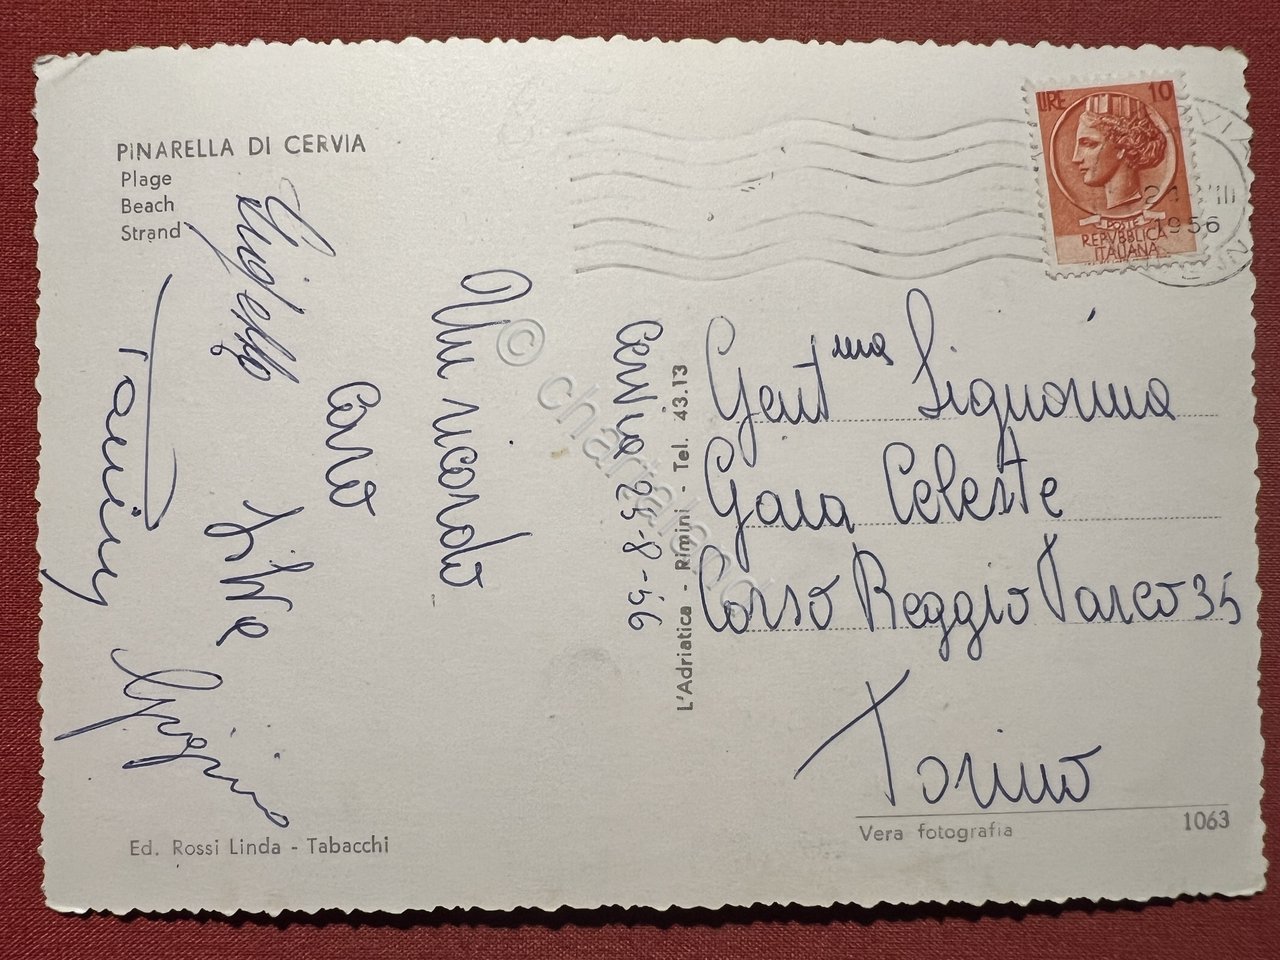 PINARELLA DI CERVIA
Plage
Beach
Strand
LIRE 10
POSTE
REPVBBLICA
ITALIANA
1956
Cervia 25-8-56
Un ricordo
Caro
Luigi
Gent.ma Signorina
Gaia Celeste
Corso Reggio Parco 35
Torino
L'Adriatica - Rimini - Tel. 43.13
Ed. Rossi Linda - Tabacchi
Vera fotografia
1063
© chartaland